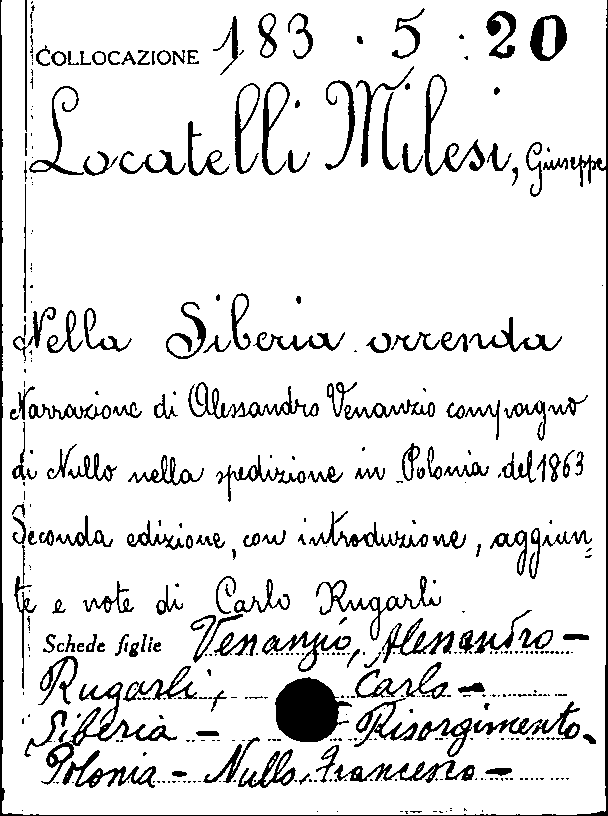 COLLOCAZIONE 183 . 5 . 20
Locatelli Milesi, Giuseppe
Nella Siberia orrenda
Narrazione di Alessandro Venanzio compagno
di Nullo nella spedizione in Polonia del 1863
Seconda edizione, con introduzione, aggiun=
te e note di Carlo Rugarli
Schede figlie Venanzio, Alessandro —
Rugarli, Carlo —
Siberia — Risorgimento.
Polonia — Nullo, Francesco —